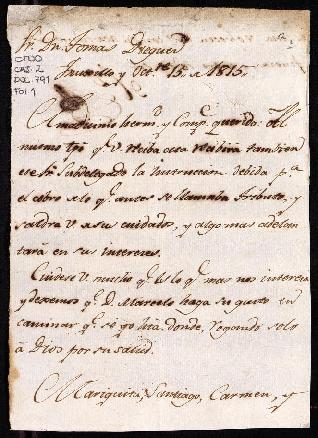 Sr. Dn. Tomas Dieguez
Truxillo y Oct.e 15. de 1815.
CTDO
CAS. 2
DOC. 791
FOL. 1
Amadisimo herm.o y Comp.e querido: Al
mismo tpo q.e V. reciba esta recibira tambien
ese Sr. Subdelegado la instruccion debida p.a
el cobro de lo q.e antes se llamaba tributo, y
saldra V. de su cuidados, y algo mas adelan
tará en sus intereses.
Cuidese V. mucho q.e es lo q.e mas nos interesa
y dexemos q.e D. Marcelo haga su gusto en
caminar q.e donde, rogando solo
á Dios por su salud.
Mariquita, Santiago, Carmen, y